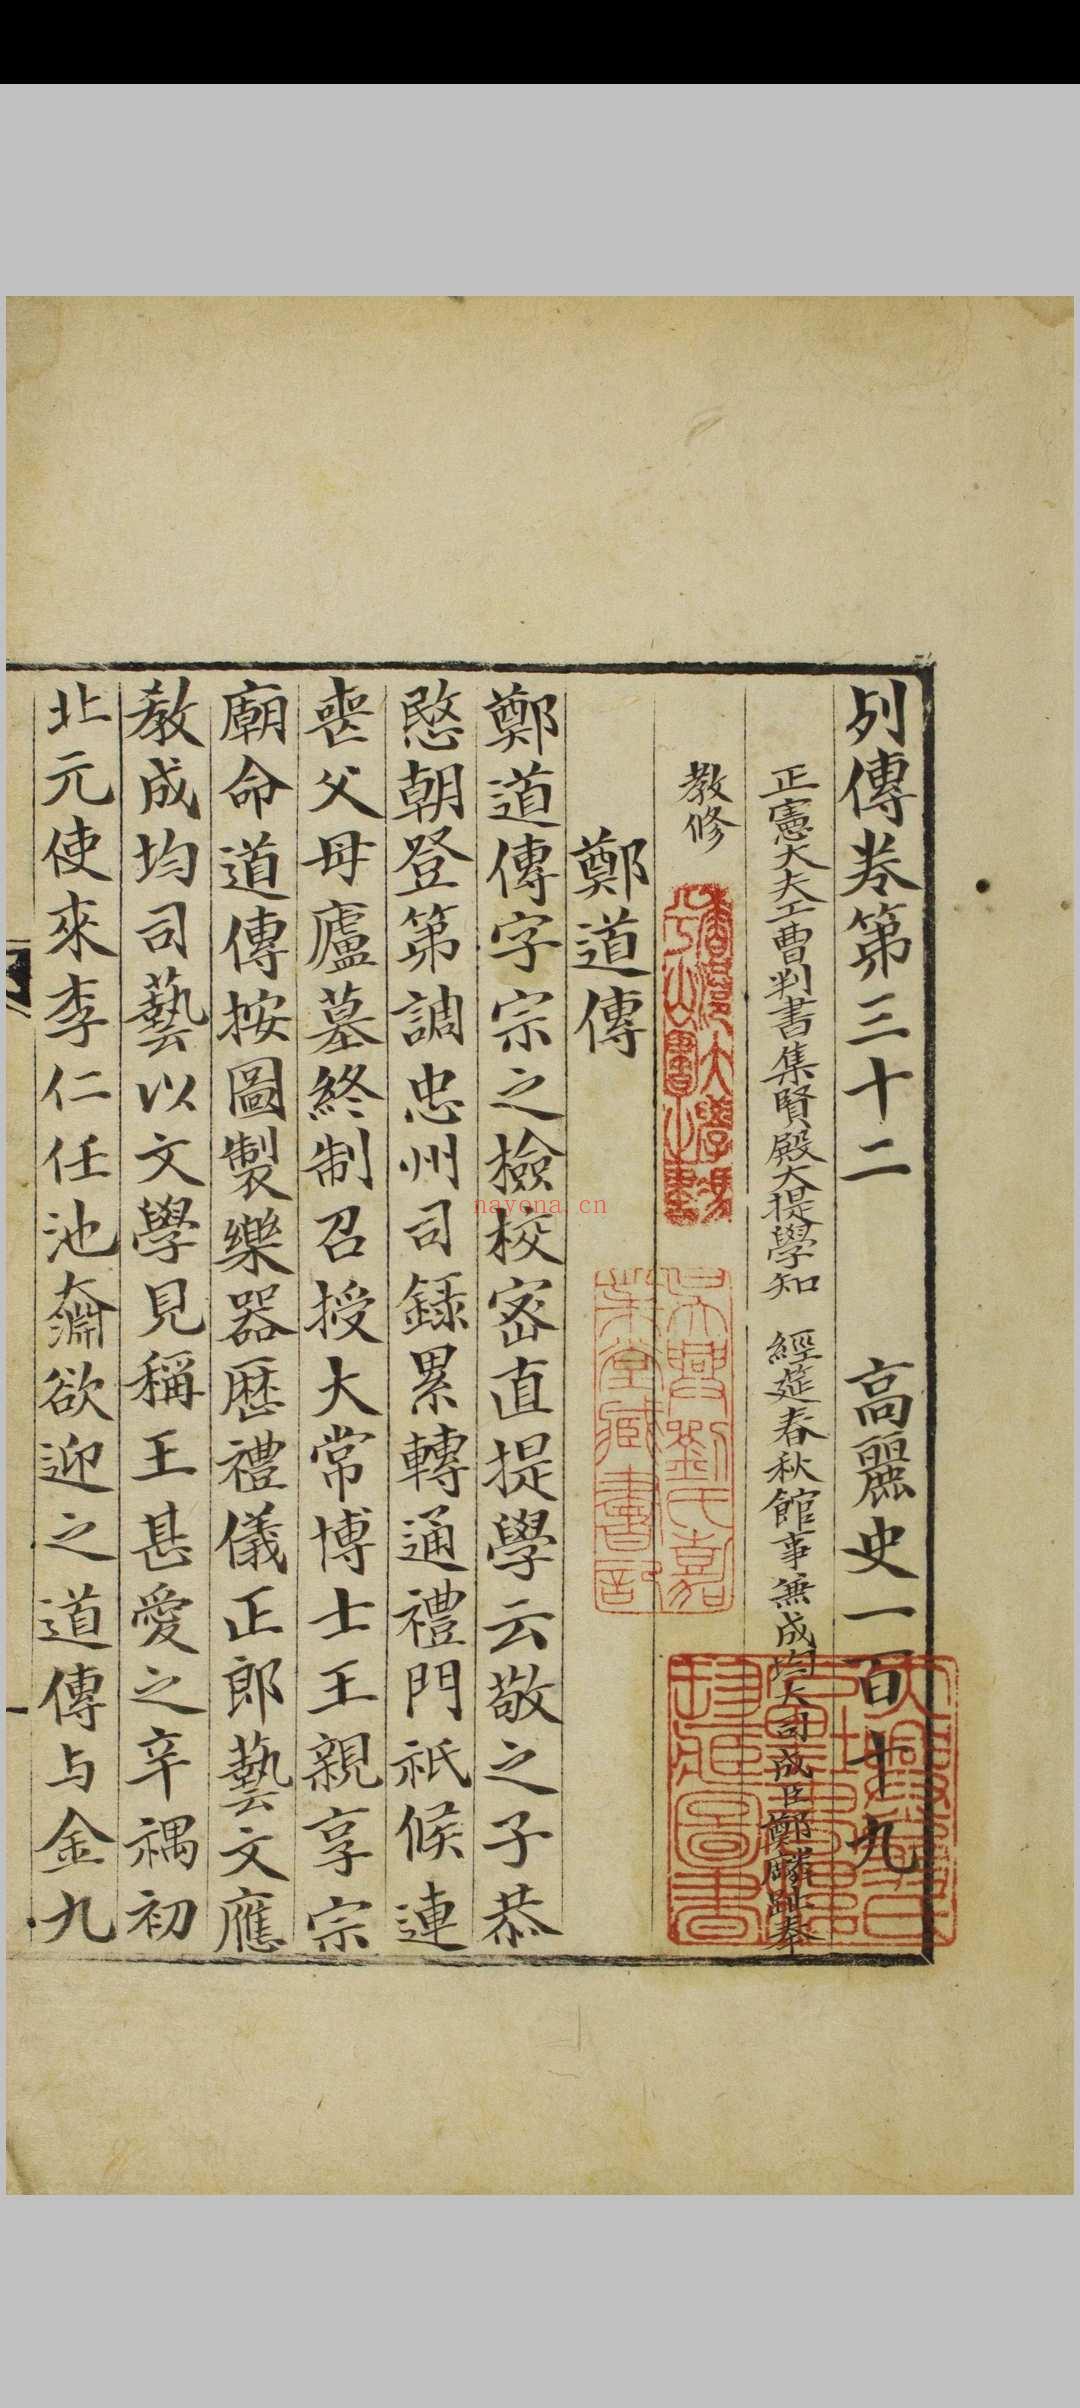 列傳卷第三十二 高麗史一百十九
正憲大夫工曹判書集賢殿大提學知 經筵春秋館事兼成均大司成臣鄭麟趾奉
教修
鄭道傳
鄭道傳字宗之檢校密直提學云敬之子恭
愍朝登第調忠州司録累轉通禮門祗候連
喪父母廬墓終制召授大常博士王親享宗
廟命道傳按圖製樂器歷禮儀正郎藝文應
教成均司藝以文學見稱王甚愛之辛禑初
北元使來李仁任池奫欲迎之道傳与金九
吳興劉氏嘉業堂藏書印
nayona.cn